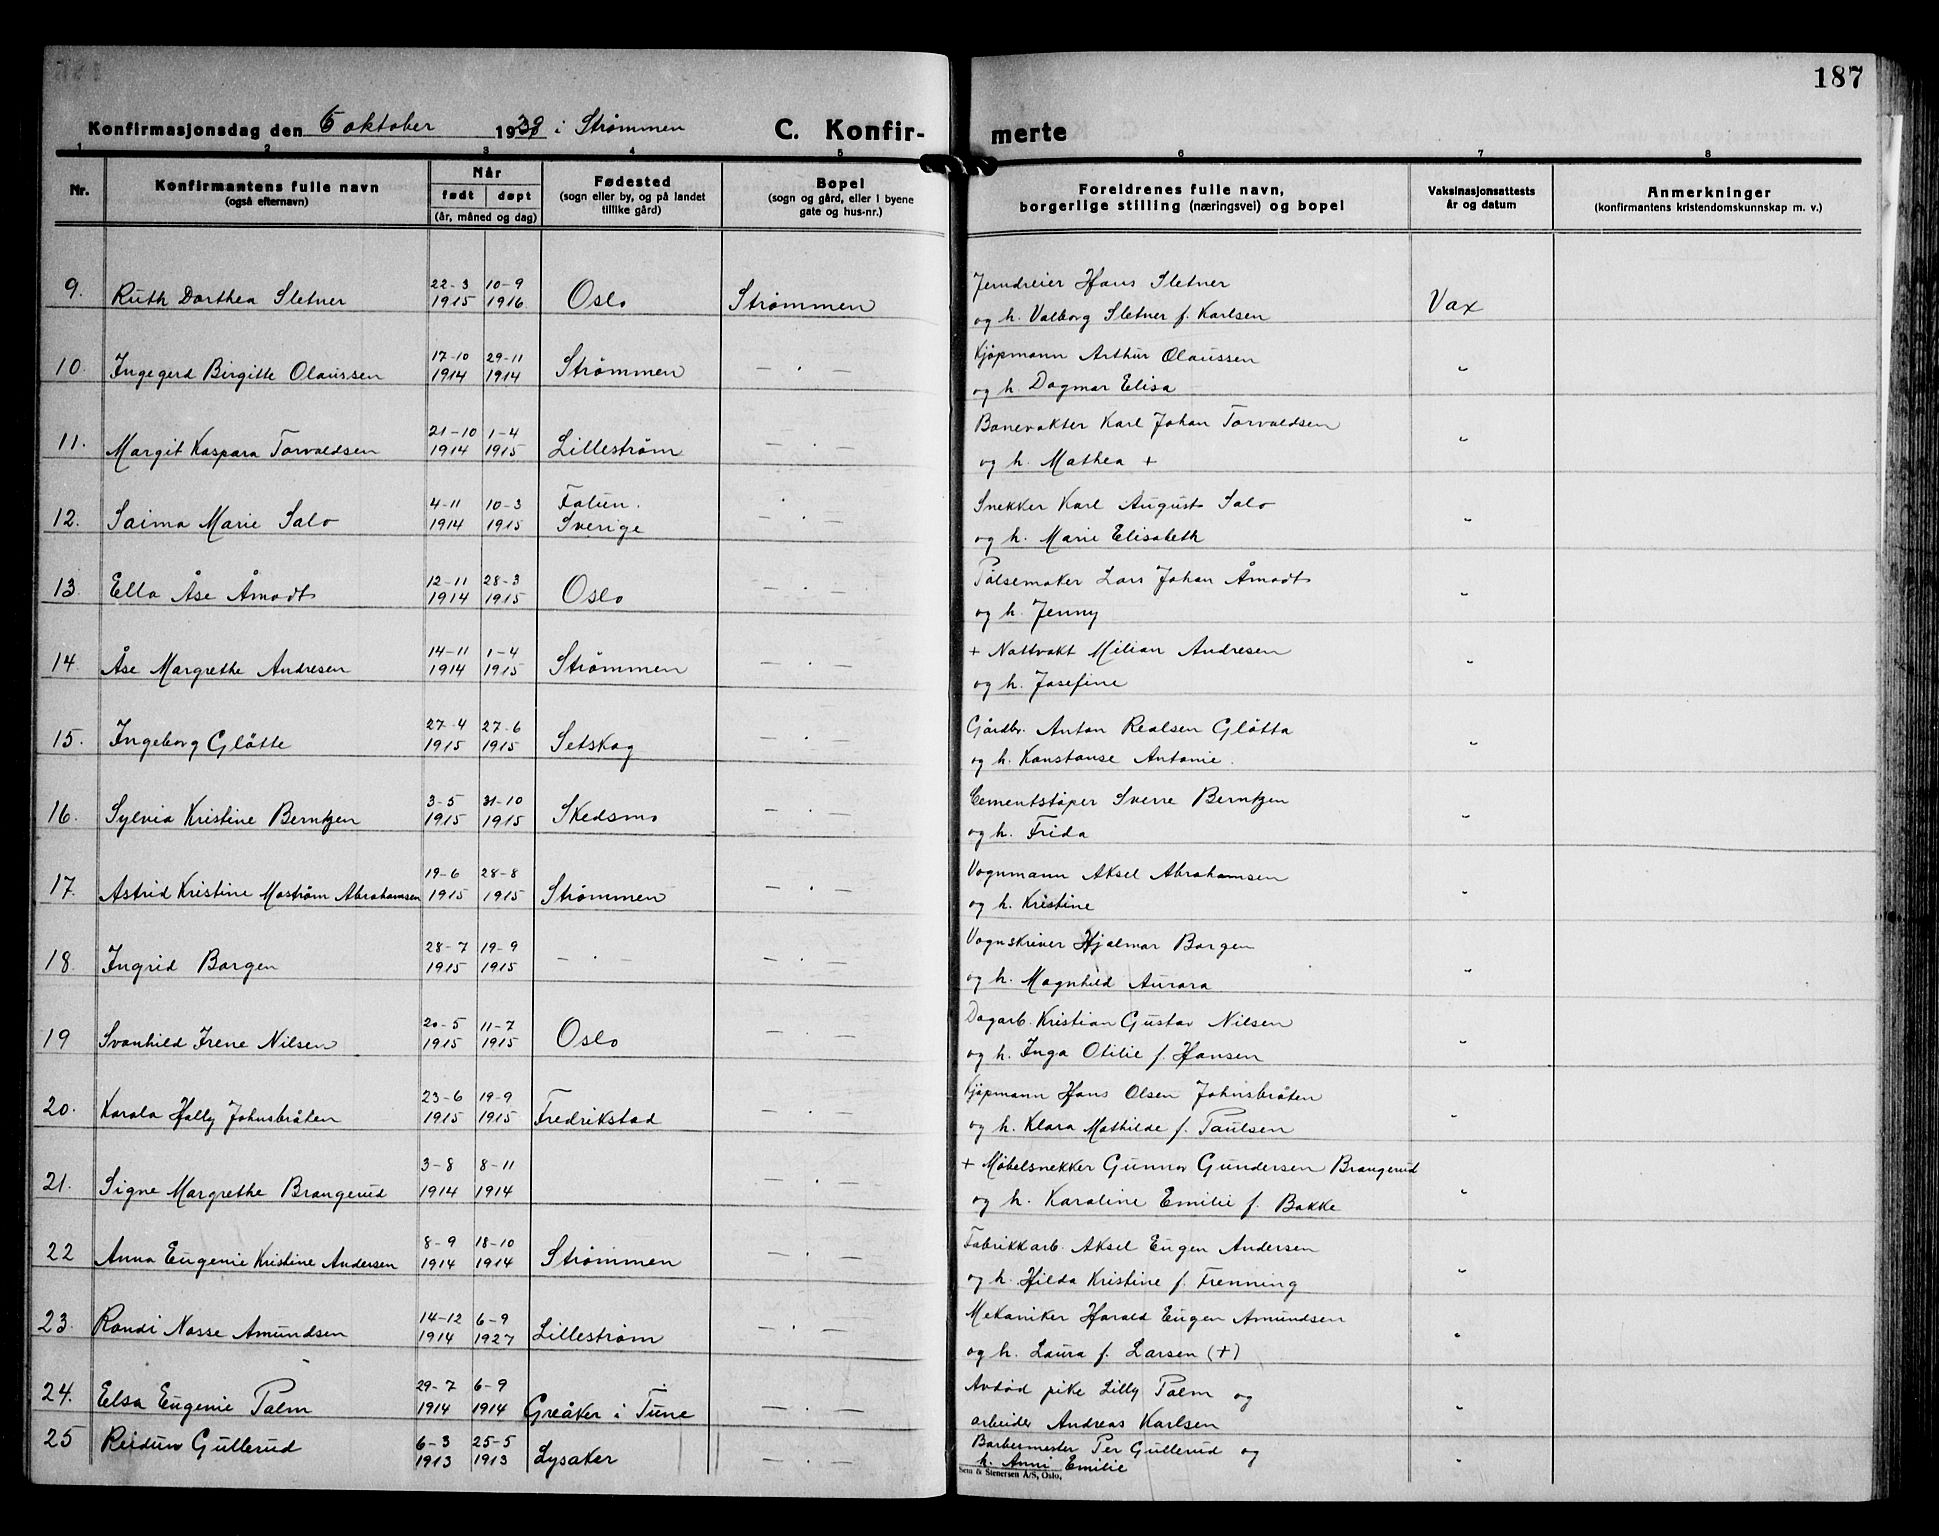 187
Konfirmasjonsdag den 6 oktober 1929 i Strømmen C. Konfir- merte
1 2 3 4 5 6 7 8
Nr. Konfirmantens fulle navn (også efternavn) Når født døpt (år, måned og dag) Fødested (sogn eller by, og på landet tillike gård) Bopel (sogn og gård, eller i byene gate og hus-nr.) Foreldrenes fulle navn, borgerlige stilling (næringsvei) og bopel Vaksinasjonsattests år og datum Anmerkninger (konfirmantens kristendomskunnskap m. v.)
22-3 10-9 Jerndreier Hans Sletner
9. Ruth Dorthea Sletner 1915 1916 Oslo Strømmen og h. Valborg Sletner f. Karlsen Vax
17-10 29-11 Kjøpmann Arthur Olaussen
10. Ingegerd Birgitte Olaussen 1914 1914 Strømmen — . — og h. Dagmar Elisa "
21-10 1-4 Banevakter Karl Johan Torvaldsen
11. Margit Kaspara Torvaldsen 1914 1915 Lillestrøm — . — og h. Mathea + "
4-11 10-3 Falun. Snekker Karl August Salo
12. Saima Marie Salo 1914 1915 Sverige — . — og h. Marie Elisabeth "
12-11 28-3 Pølsemaker Lars Johan Åmodt
13 Ella Åse Åmodt 1914 1915 Oslo — . — og h. Jenny "
14-11 1-4 + Nattvakt Milian Andresen
14 Åse Margrethe Andresen 1914 1915 Strømmen — . — og h. Josefine "
27-4 27-6 Gårdbr. Anton Realsen Gløtta
15. Ingeborg Gløtte 1915 1915 Setskog — . — og h. Konstanse Antonie. "
3-5 31-10 Cementstøper Sverre Berntzen
16. Sylvia Kristine Berntzen 1915 1915 Skedsmo — . — og h. Frida "
19-6 28-8 Vognmann Aksel Abrahamsen
17. Astrid Kristine Moström Abrahamsen 1915 1915 Strømmen — . — og h. Kristine "
28-7 19-9 Vognskriver Hjalmar Borgen
18. Ingrid Borgen 1915 1915 — . — — . — og h. Magnhild Aurora "
20-5 11-7 Dagarb. Kristian Gustav Nilsen
19 Svanhild Irene Nilsen 1915 1915 Oslo — . — og h. Inga Otilie f. Hansen "
23-6 19-9 Kjøpmann Hans Olsen Johnsbråten
20. Karala Hally Johnsbråten 1915 1915 Fredrikstad — . — og h. Klara Mathilde f. Paulsen "
3-8 8-11 + Møbelsnekker Gunnar Gundersen Brangerud
21. Signe Margrethe Brangerud 1914 1914 — . — og h. Karoline Emilie f. Bakke "
8-9 18-10 Fabrikkarb. Aksel Eugen Andersen
22 Anna Eugenie Kristine Andersen 1914 1914 Strømmen — . — og h. Hilda Kristine f. Frenning "
14-12 6-9 Mekaniker Harald Eugen Amundsen
23. Randi Nasse Amundsen 1914 1927 Lillestrøm — . — og h. Laura f. Larsen (+) "
29-7 6-9 Avdød pike Lilly Palm og
24. Elsa Eugenie Palm 1914 1914 Greåker i Tune — . — arbeider Andreas Karlsen "
6-3 25-5 Barbermester Per Gullerud og
25 Reidun Gullerud 1913 1913 Lysaker — . — h. Anni Emilie "
Sem & Stenersen A/S, Oslo.